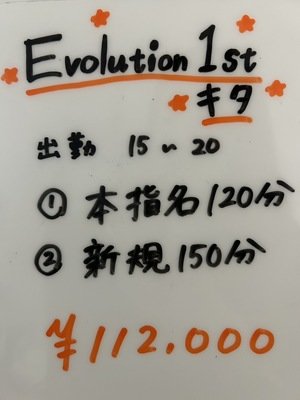 Evolution 1st
キタ
出勤 15〜20
① 本指名120分
② 新規150分
¥112.000